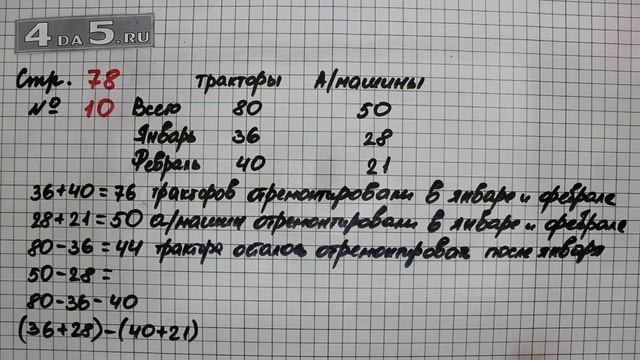 4 DA 5.RU
Стр. 78 тракторы А/машины
№ 10 Всего 80 50
Январь 36 28
Февраль 40 21
36+40=76 тракторов отремонтировали в январе и феврале
28+21=50 а/машин отремонтировали в январе и феврале
80-36=44 трактора осталось отремонтировать после января
50-28=
80-36-40
(36+28)-(40+21)